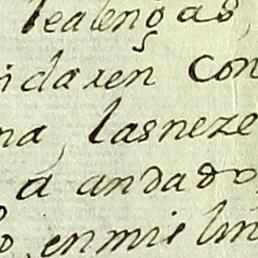 lealengas,
idaren con
na, lasneze
a andado
enmie lin